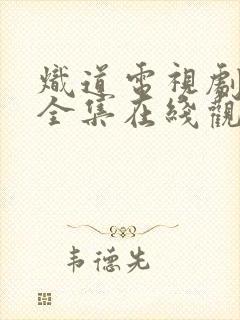 熾道電視劇
全集在綫觀
韦德先